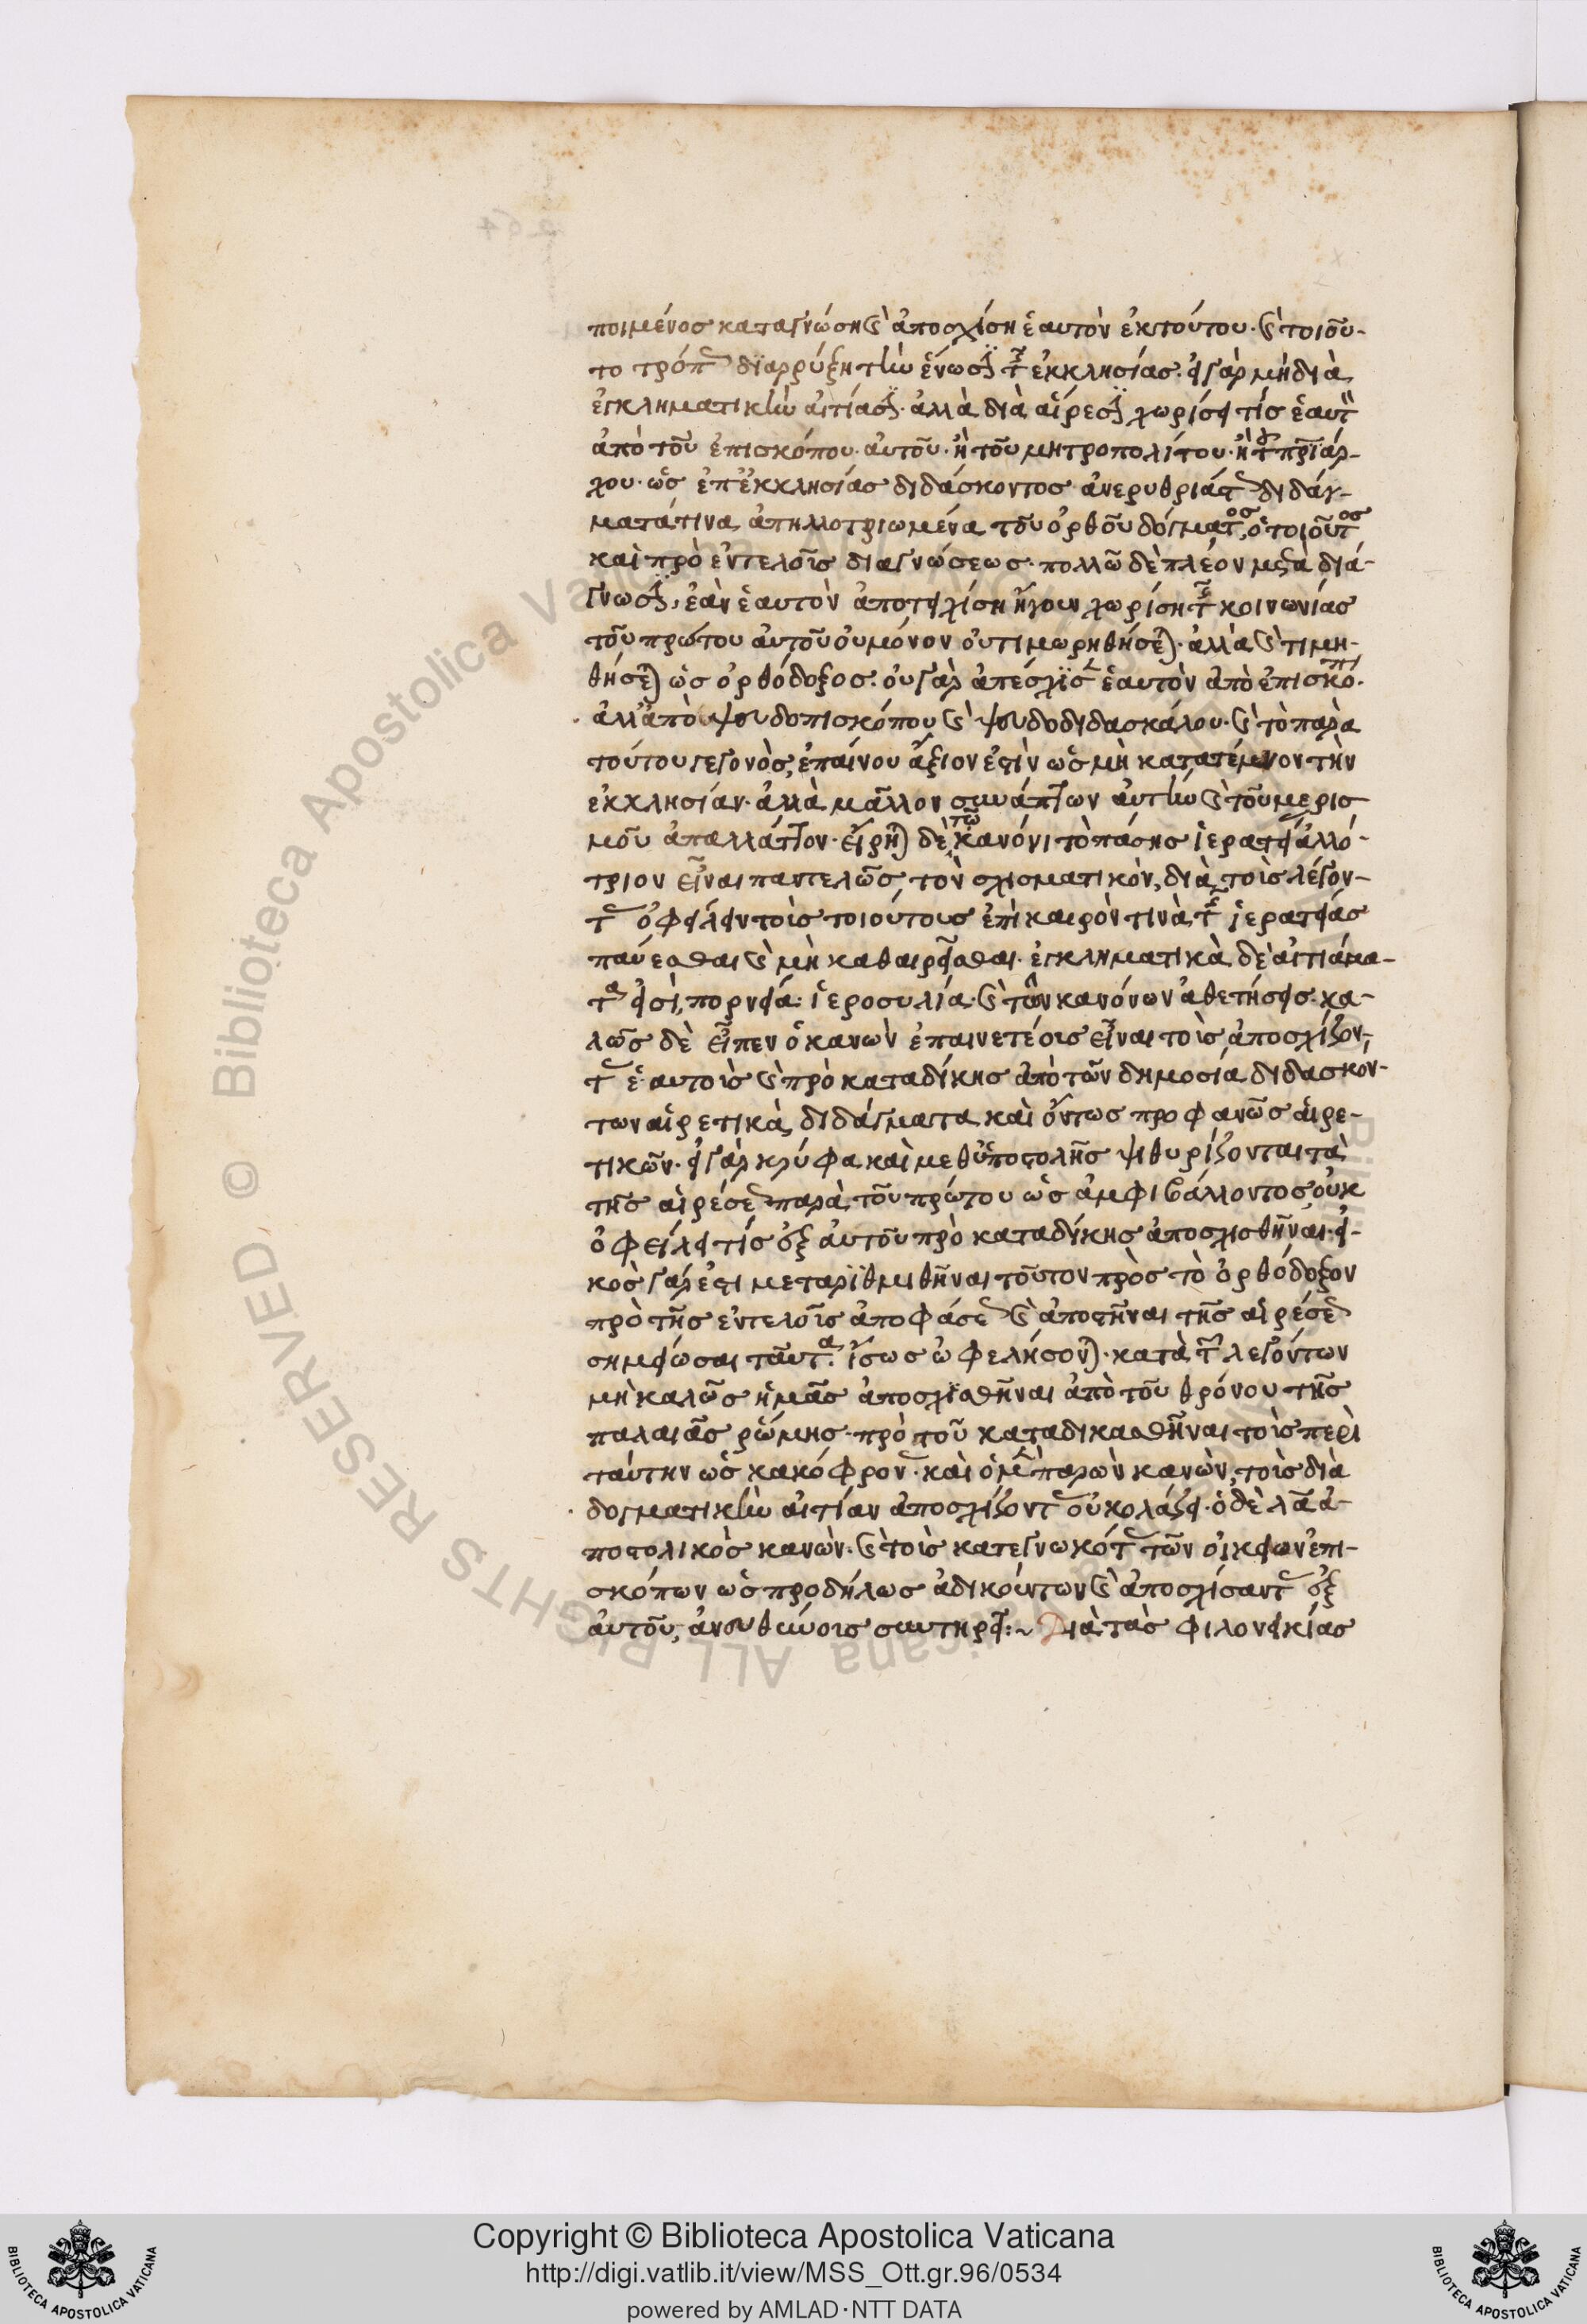 ποιμένος καταγνώση καὶ ἀποσχίση ἑαυτὸν ἐκ τούτου· καὶ τοιού-
το τρόπω διαρρύξη τὴν ἕνωσιν τῆς ἐκκλησίας· εἰ γὰρ μὴ διὰ
ἐγκληματικὴν αἰτίασιν· ἀλλὰ διὰ αἵρεσιν χωρίσει τίς ἑαυτὸν
ἀπὸ τοῦ ἐπισκόπου αὐτοῦ· ἢ τοῦ μητροπολίτου· ἢ τοῦ πριάρ-
χου· ὡς ἐπ' ἐκκλησίας διδάσκοντος ἀνερυθριάστως διδάγ-
ματά τινα ἀπηλλοτριωμένα τοῦ ὀρθοῦ δόγματος, ὁ τοιοῦτος
καὶ πρὸ ἐντελοῦς διαγνώσεως· πολλῶ δὲ πλέον μετὰ διά-
γνωσιν, ἐὰν ἑαυτὸν ἀποτειχίση ἤγουν χωρίση τῆς κοινωνίας
τοῦ πρώτου αὐτοῦ οὐ μόνον οὐ τιμωρηθήσεται· ἀλλὰ καὶ τιμη-
θήσεται ὡς ὀρθόδοξος· οὐ γὰρ ἀπέσχισεν ἑαυτὸν ἀπὸ ἐπισκόπου·
ἀλλ' ἀπὸ ψευδοπισκόπου καὶ ψευδοδιδασκάλου· καὶ τὸ παρὰ
τούτου γεγονὸς, ἐπαίνου ἄξιον ἐστὶν ὡς μὴ κατατέμνον τὴν
ἐκκλησίαν· ἀλλὰ μᾶλλον συνάπτων αὐτὴν καὶ τοῦ μερισ
μοῦ ἀπαλλάττον· εἴρηται δὲ τῶ κανόνι τὸ πάσης ἱερατείας ἀλλό-
τριον εἶναι παντελῶς τὸν σχισματικὸν, διὰ τοὺς λέγον-
τας ὀφείλειν τοὺς τοιούτους ἐπὶ καιρόν τινὰ τῆς ἱερατείας
παύεσθαι καὶ μὴ καθαιρεῖσθαι· ἐγκληματικὰ δὲ αἰτιάμα-
τα εἰσὶ, πορνεία· ἱεροσυλία· καὶ τῶν κανόνων ἀθετήσεις· κα-
λῶς δὲ εἶπεν ὁ κανὼν ἐπαινετέους εἶναι τοὺς ἀποσχίζον-
τας ἑαυτοὺς καὶ πρὸ καταδίκης ἀπὸ τῶν δημοσία διδασκόν-
των αἱρετικὰ διδάγματα καὶ ὄντως προφανῶς αἱρε-
τικῶν· εἰ γὰρ κρύφα καὶ μεθ' ὑποστολῆς ψιθυρίζονται τὰ
τῆς αἱρέσεως παρὰ τοῦ πρώτου ὡς ἀμφιβάλλοντος οὐκ
ὀφείλει τίς ἐξ αὐτοῦ πρὸ καταδίκης ἀποσχισθῆναι· εἰ-
κὸς γάρ ἐστι μεταριθμιθῆναι τοῦτον πρὸς τὸ ὀρθόδοξον
πρὸ τῆς ἐντελοῦς ἀποφάσεως καὶ ἀποστῆναι τῆς αἱρέσεως
σημείωσαι ταῦτα· ἴσως ὠφελήσονται· κατὰ τῶν λεγόντων
μὴ καλῶς ἡμᾶς ἀποσχισθῆναι ἀπὸ τοῦ θρόνου τῆς
παλαιᾶς ῥώμης· πρὸ τοῦ καταδικασθῆναι τοὺς περὶ
ταύτην ὡς κακόφρονας· καὶ ὁ μὲν παρὼν κανὼν, τοὺς διὰ
δογματικὴν αἰτίαν ἀποσχίζοντας οὐ κολάζει· ὁ δὲ λα ἀ-
ποστολικὸς κανὼν· καὶ τοὺς κατεγνωκότας τῶν οἰκείων ἐπι-
σκόπων ὡς προδήλως ἀδικούντων καὶ ἀποσχίσαντας ἐξ
αὐτοῦ, ἀνευθύνους συντηρεῖ:~ Διὰ τὰς φιλονεικίας
Copyright © Biblioteca Apostolica Vaticana
http://digi.vatlib.it/view/MSS_Ott.gr.96/0534
powered by AMLAD·NTT DATA